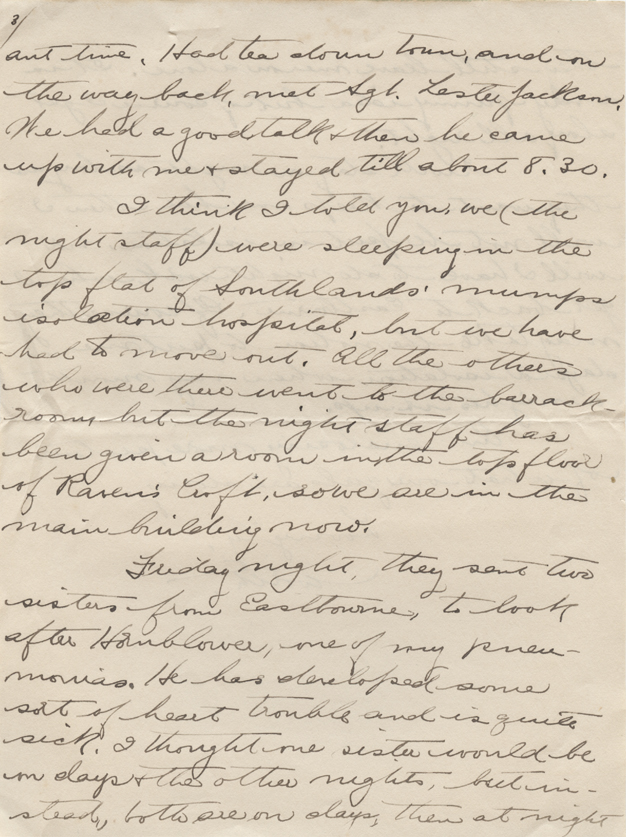 3/
ant time. Had tea down town, and on
the way back, met Sgt. Lester Jackson.
We had a good talk & then he came
up with me & stayed till about 8.30.
I think I told you, we (the
night staff) were sleeping in the
top flat of Southlands' mumps
isolation hospital, but we have
had to move out. All the others
who were there went to the barrack-
room, but the night staff has
been given a room in the top floor
of Raven's Croft, so we are in the
main building now.
Friday night, they sent two
sisters from Eastbourne, to look
after Hornblower, one of my pneu-
monias. He has developed some
sort of heart trouble and is quite
sick. I thought one sister would be
on days & the other nights, but in-
stead, both are on days, then at night